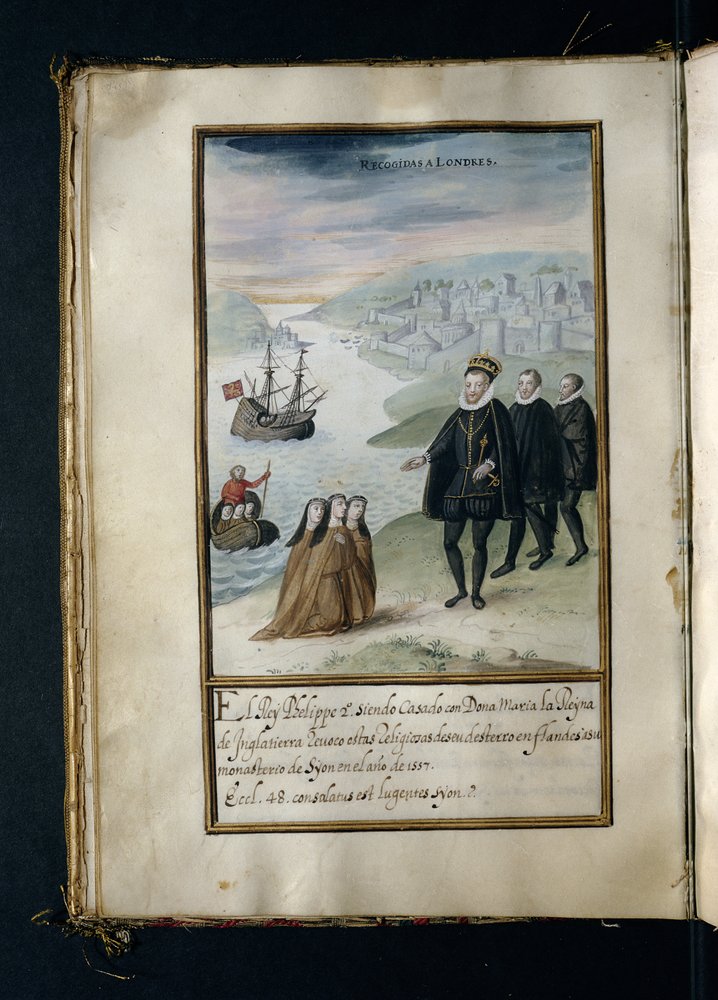 RECOGIDAS A LONDRES.
EL Rey Phelippe 2º. siendo Casado con Dona Maria la Reyna
de Inglatierra Revoco estas Religiosas de seu desterro en flandes asu
monasterio de Syon en el año de 1557.
Eccl. 48. consalatus est lugentes syon.